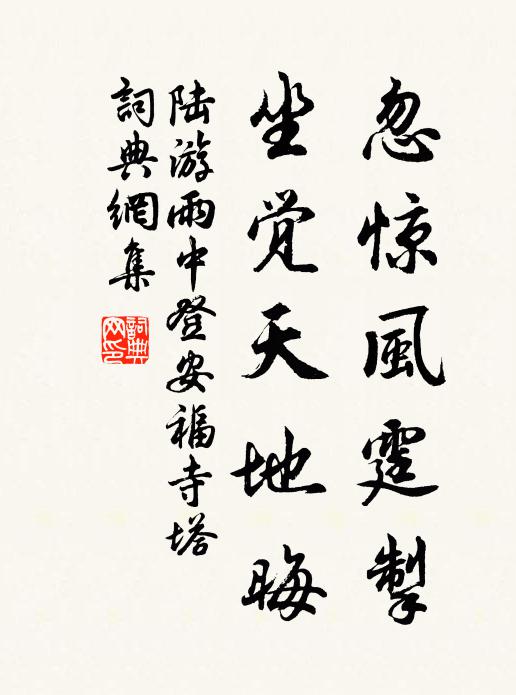 忽惊風霆掣
坐觉天地晦
陆游雨中登安福寺塔
詞典網集
詞典网印